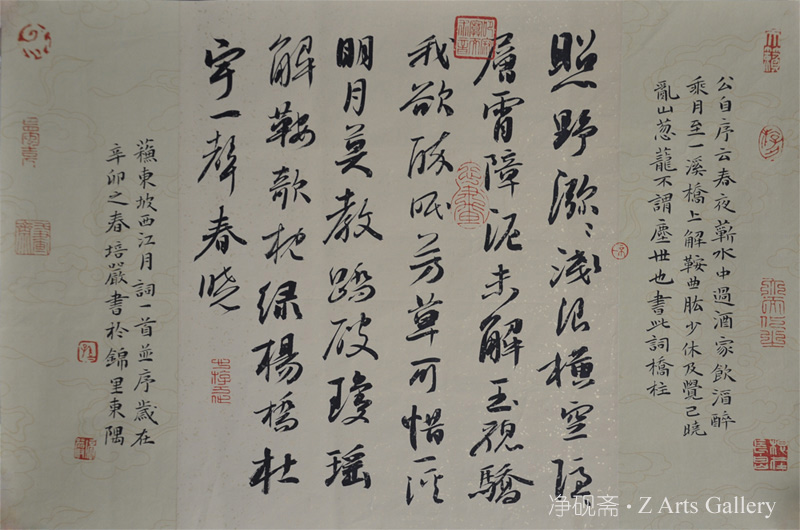 公自序云春夜蘄水中過酒家飲酒醉
乘月至一溪橋上解鞍曲肱少休及覺已曉
亂山葱蘢不謂塵世也書此詞橋柱
照野瀰〻淺浪橫空隱〻
層霄障泥未解玉驄驕
我欲醉眠芳草可惜一溪
明月莫教踏破瓊瑤
解鞍欹枕绿楊橋杜
宇一聲春曉
蘓東坡西江月詞一首並序歲在
辛卯之春培嚴書於錦里東隅
净砚斋·Z Arts Gallery